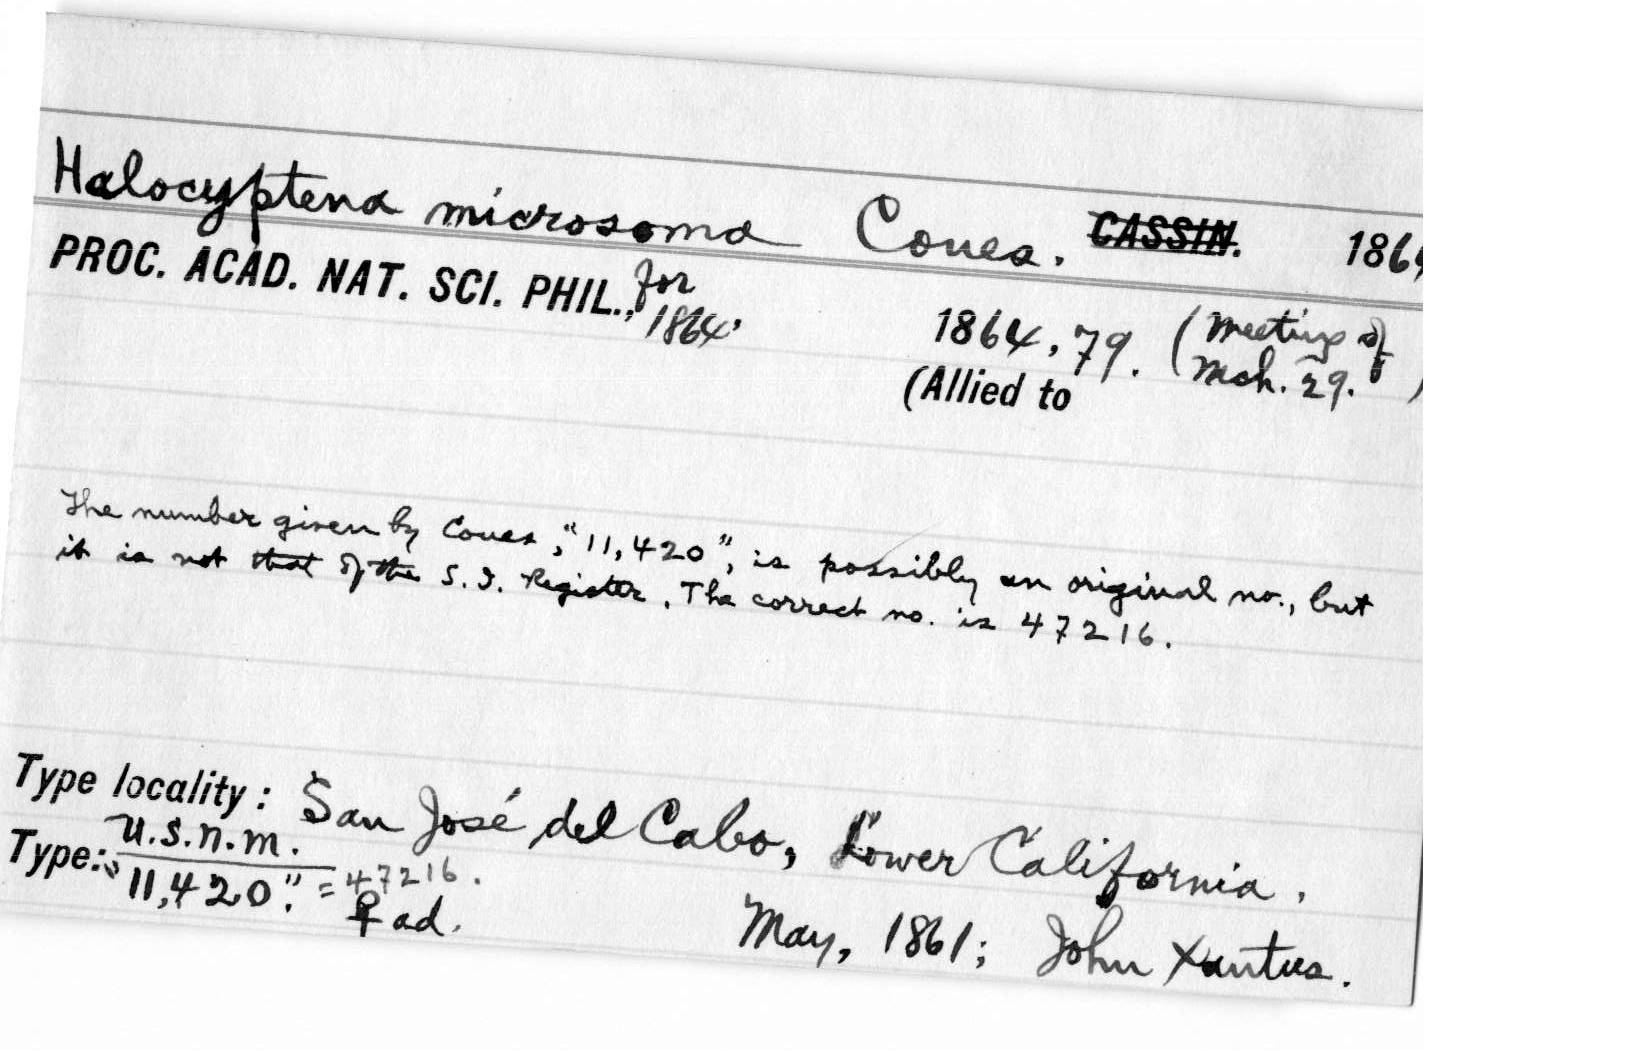 Halocyptena microsoma Coues. CASSIN. 1864
PROC. ACAD. NAT. SCI. PHIL., for 1864, 1864, 79. (Meeting of Mch. 29.)
(Allied to
The number given by Coues, "11,420", is possibly an original no., but
it is not that of the S. I. Register. The correct no. is 47216.
Type locality: San José del Cabo, Lower California.
Type: U.S.N.M.
"11,420". = 47216.
♀ ad. May, 1861; John Xantus.